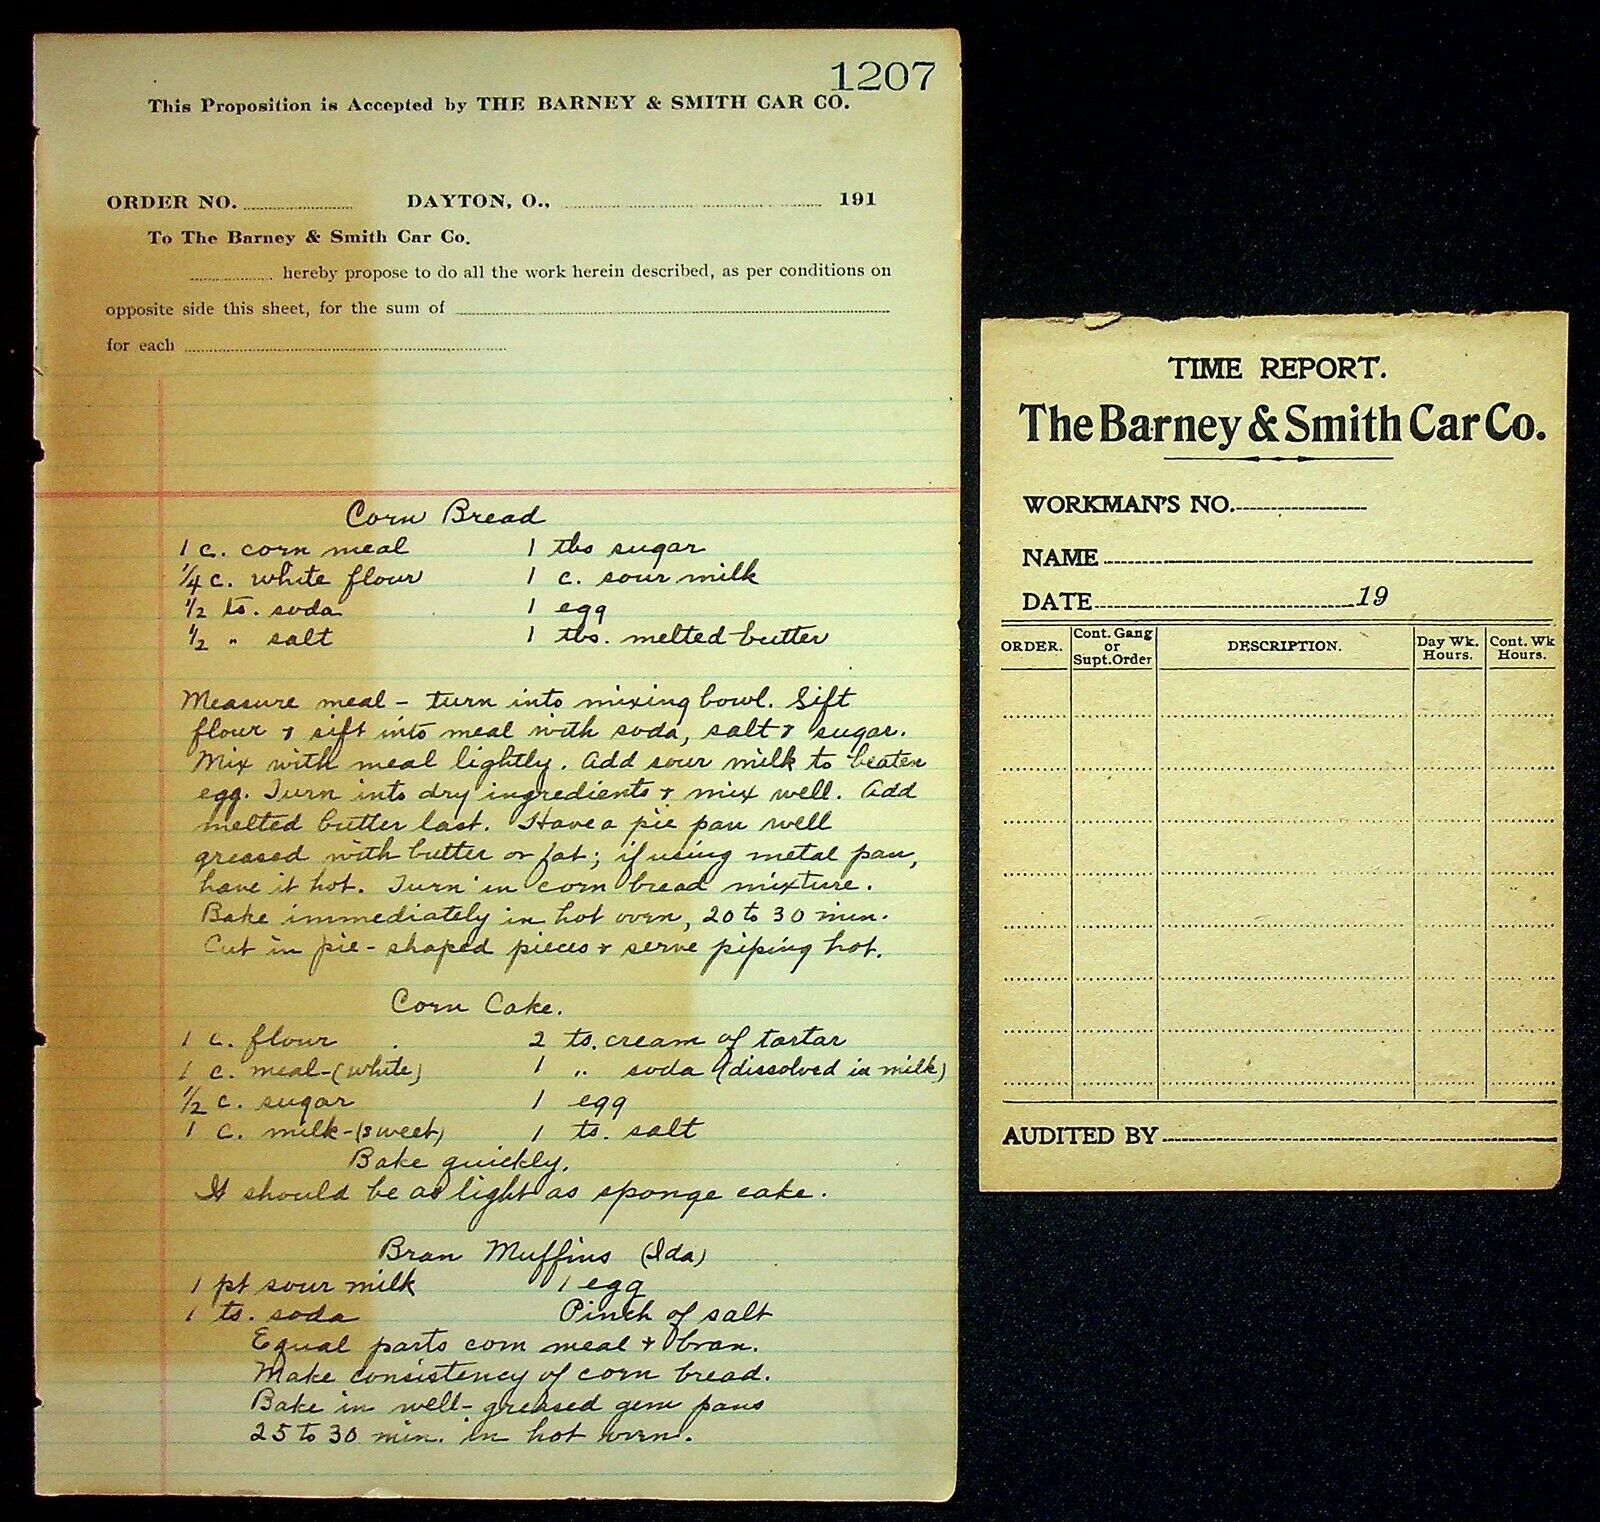 1207
This Proposition is Accepted by THE BARNEY & SMITH CAR CO.
ORDER NO. DAYTON, O., 191
To The Barney & Smith Car Co.
hereby propose to do all the work herein described, as per conditions on
opposite side this sheet, for the sum of
for each
Corn Bread
1 c. corn meal 1 tbs sugar
1/4 c. white flour 1 c. sour milk
1/2 ts. soda 1 egg
1/2 " salt 1 tbs. melted butter
Measure meal - turn into mixing bowl. Sift
flour & sift into meal with soda, salt & sugar.
Mix with meal lightly. Add sour milk to beaten
egg. Turn into dry ingredients & mix well. Add
melted butter last. Have a pie pan well
greased with butter or fat; if using metal pan,
have it hot. Turn in corn bread mixture.
Bake immediately in hot oven, 20 to 30 min.
Cut in pie-shaped pieces & serve piping hot.
Corn Cake.
1 c. flour 2 ts. cream of tartar
1 c. meal-(white) 1 " soda (dissolved in milk)
1/2 c. sugar 1 egg
1 c. milk-(sweet) 1 ts. salt
Bake quickly.
It should be as light as sponge cake.
Bran Muffins (Ida)
1 pt sour milk 1 egg
1 ts. soda Pinch of salt
Equal parts corn meal & bran.
Make consistency of corn bread.
Bake in well-greased gem pans
25 to 30 min. in hot oven.
TIME REPORT.
The Barney & Smith Car Co.
WORKMAN'S NO.
NAME
DATE 19
ORDER. Cont. Gang or Supt. Order DESCRIPTION. Day Wk. Hours. Cont. Wk Hours.
AUDITED BY